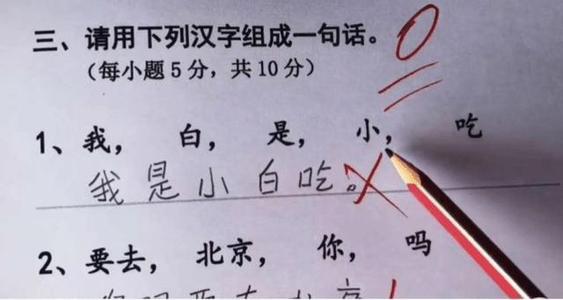 三、请用下列汉字组成一句话。
（每小题5分，共10分）
0
1、我， 白， 是， 小， 吃
我是小白吃。
2、要去， 北京， 你， 吗